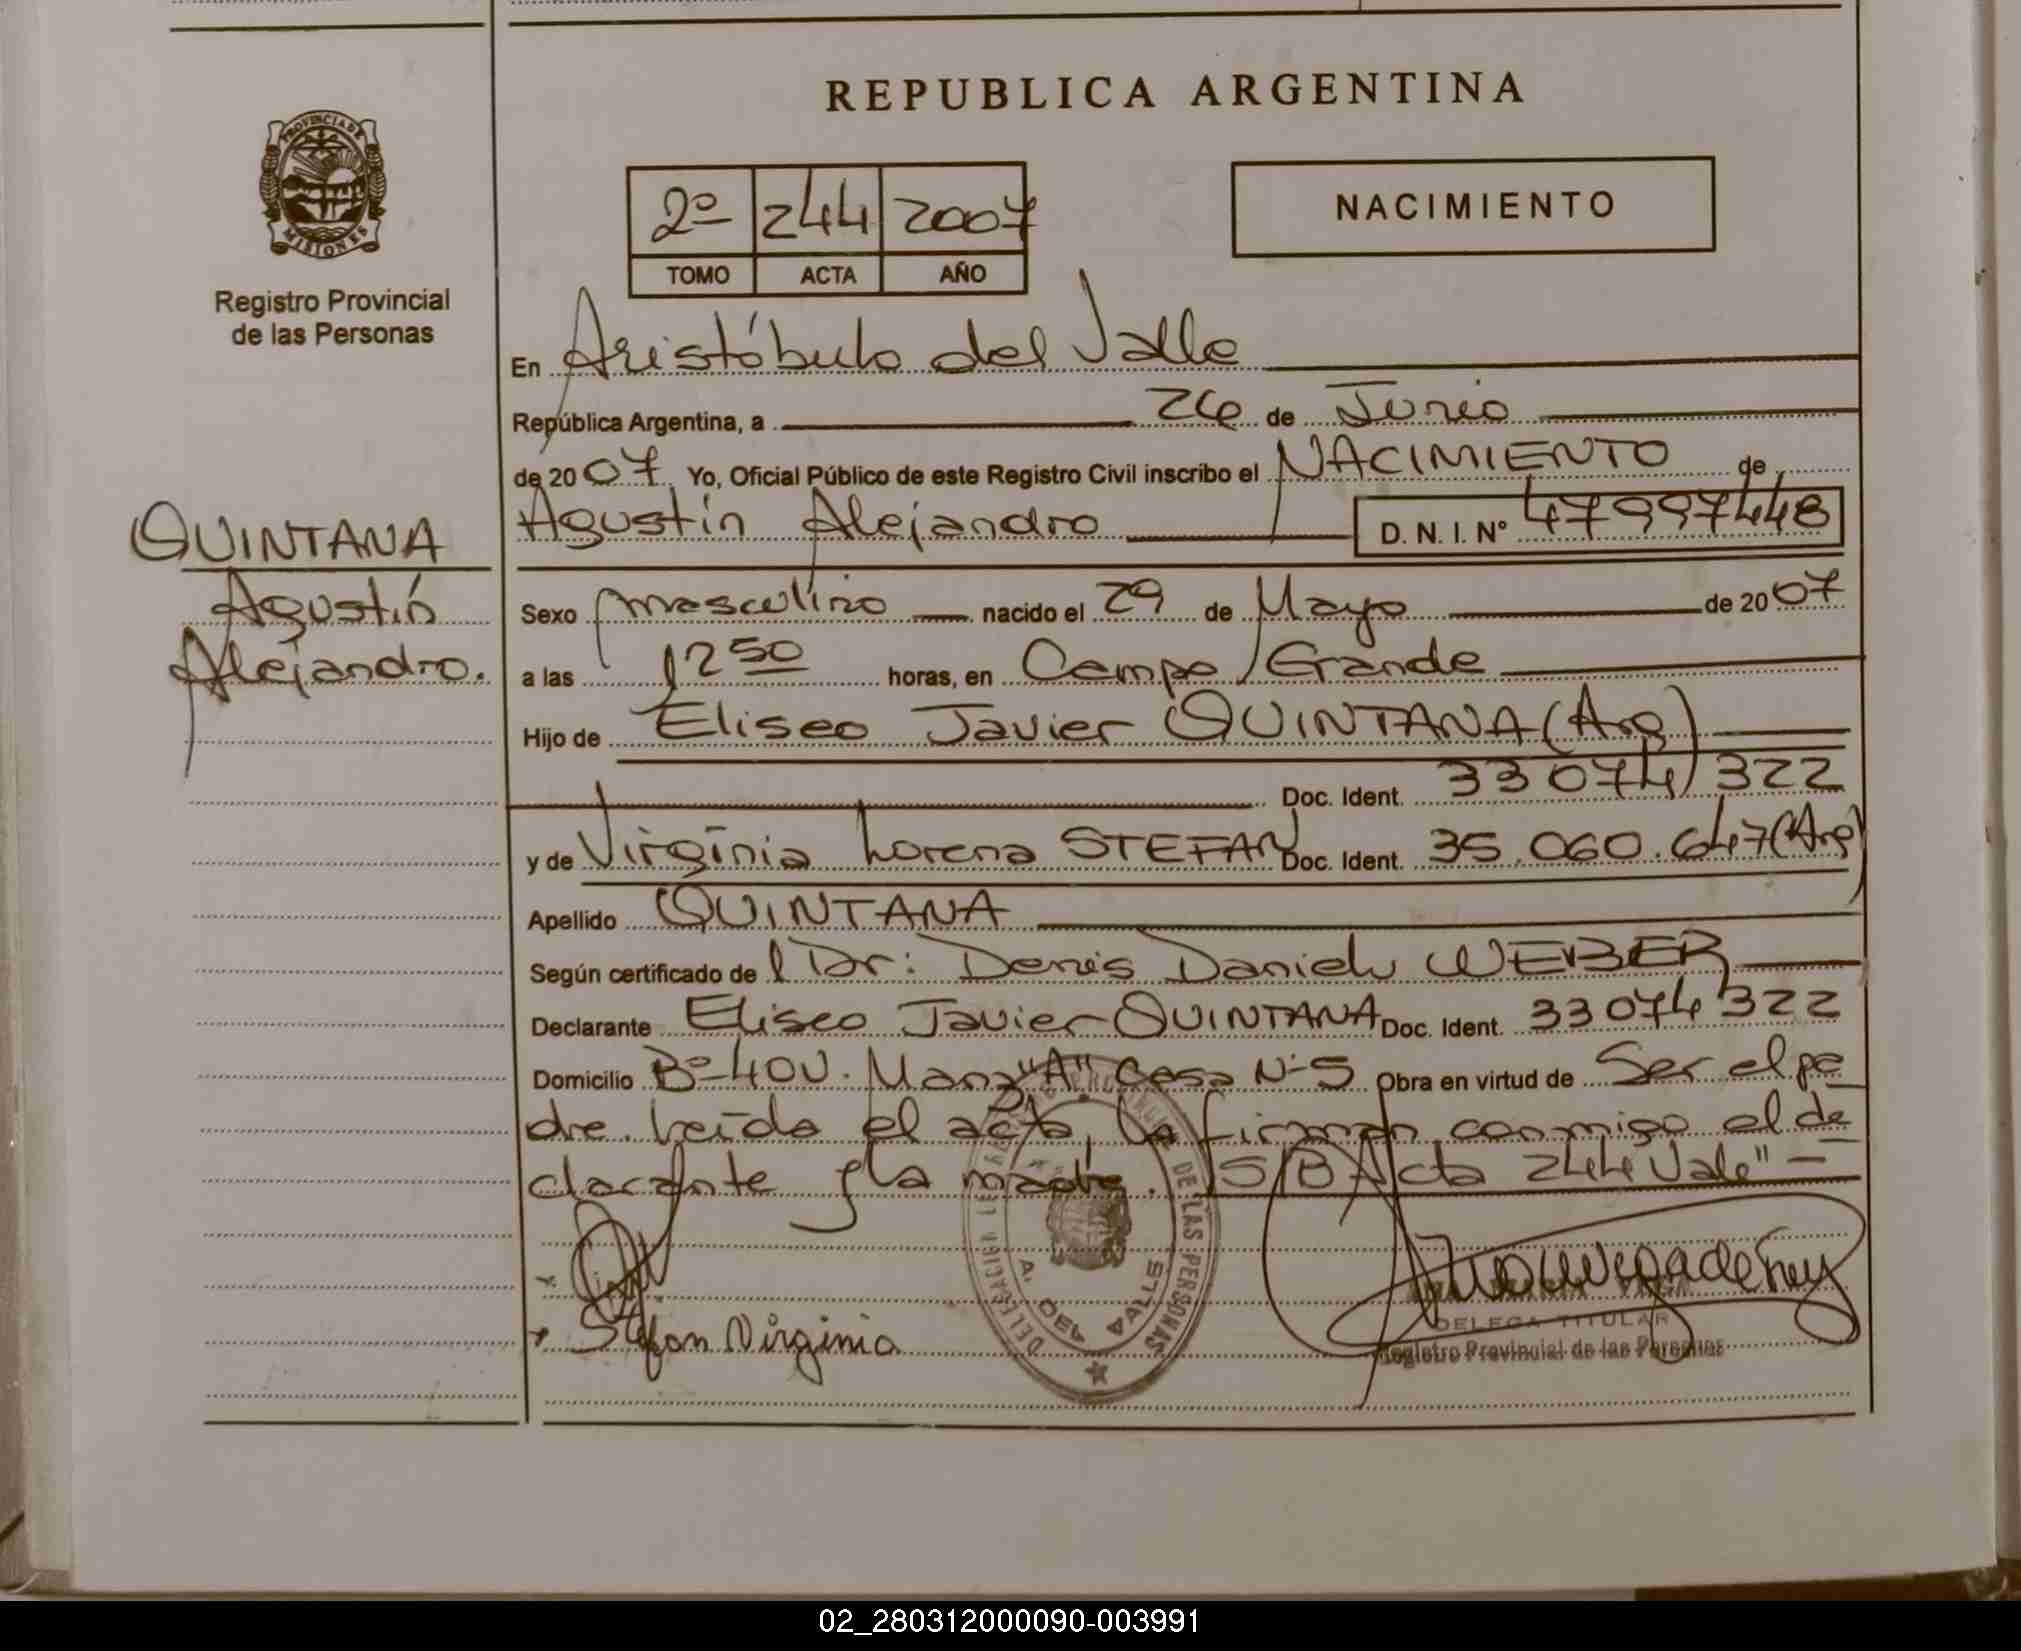 REPUBLICA ARGENTINA
PROVINCIA DE
MISIONES
Registro Provincial
de las Personas
2º 244 2007
TOMO ACTA AÑO
NACIMIENTO
En Aristóbulo del Valle
República Argentina, a 26 de Junio
de 2007 Yo, Oficial Público de este Registro Civil inscribo el NACIMIENTO de
Agustín Alejandro D. N. I. Nº 47997448
QUINTANA
Agustín
Alejandro.
Sexo masculino nacido el 29 de Mayo de 2007
a las 1250 horas, en Campo Grande
Hijo de Eliseo Javier QUINTANA (Arg)
Doc. Ident. 33074322
y de Virginia Lorena STEFAN Doc. Ident. 35.060.647 (Arg)
Apellido QUINTANA
Según certificado de l Dr: Denis Daniel WEBER
Declarante Eliseo Javier QUINTANA Doc. Ident. 33074322
Domicilio Bº 40 V. Manz "A" Casa Nº 5 Obra en virtud de Ser el pa
dre. Leída el acta, la firman conmigo el de
clarante y la madre. S/B Acta 244 Vale" -
Stefan Virginia
DE LAS PERSONAS
A. DEL VALLE
DELEGA TITULAR
Registro Provincial de las Personas
02_280312000090-003991